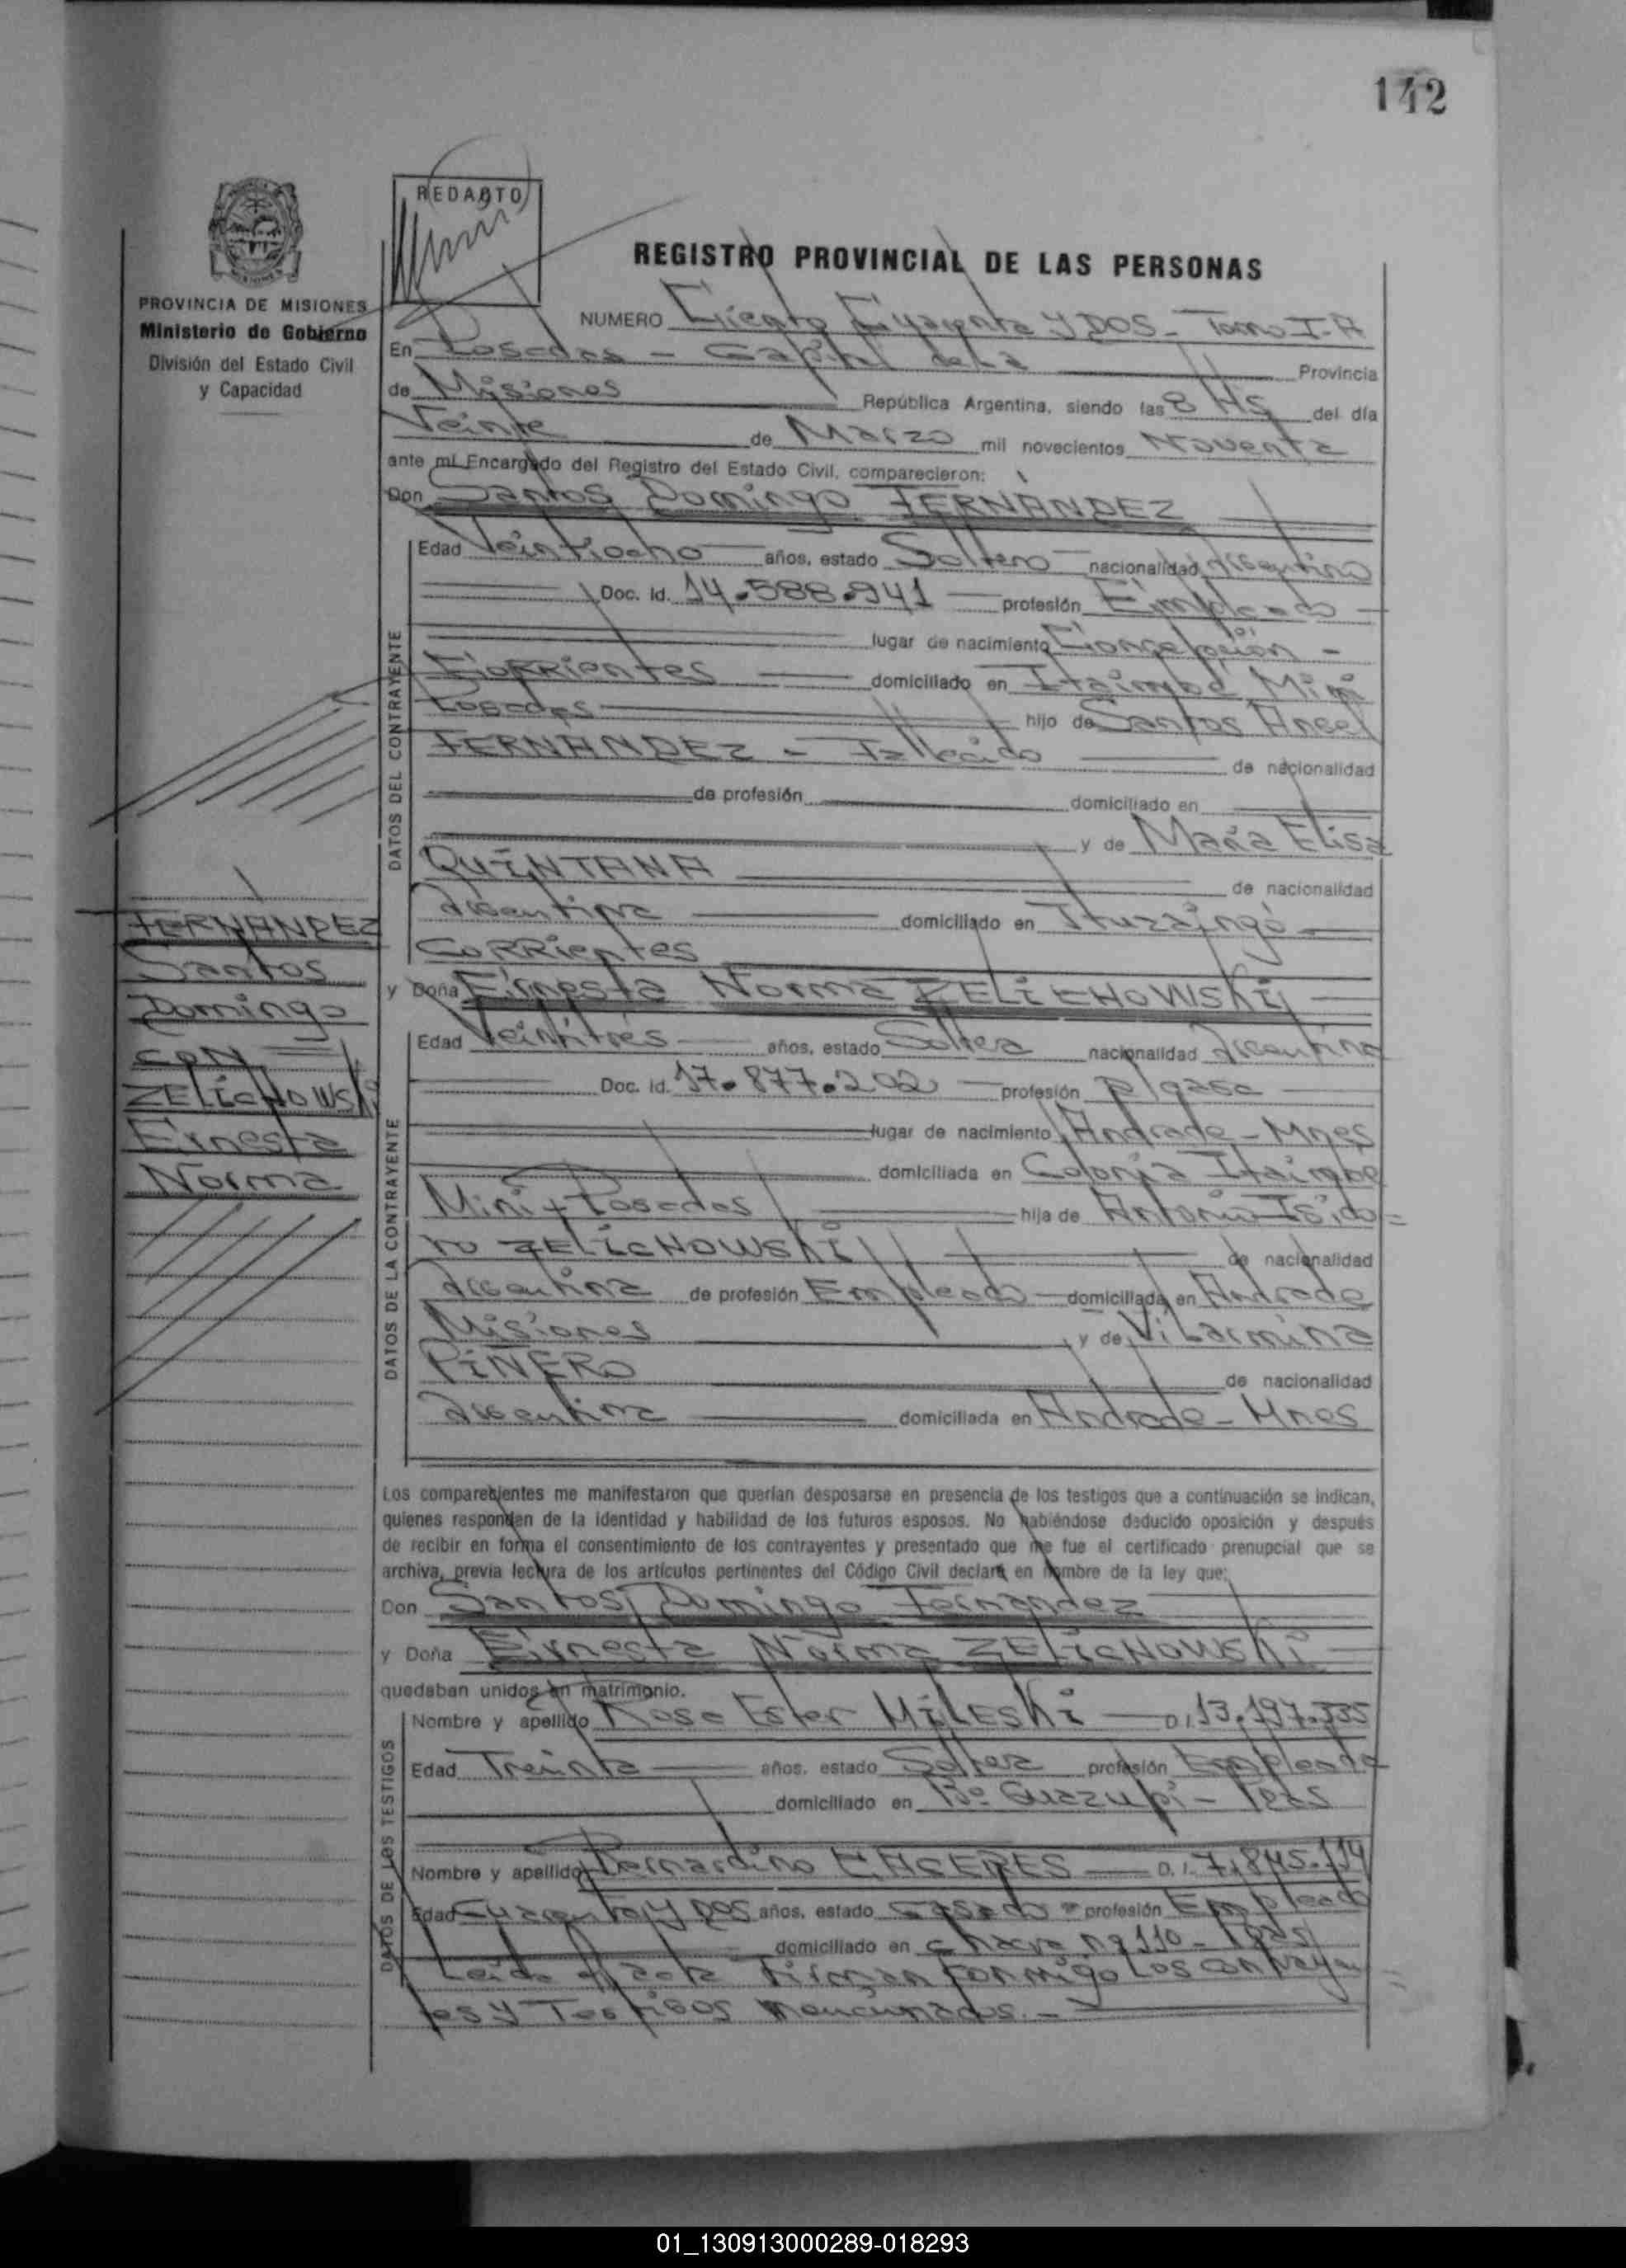 142
REDACTO
PROVINCIA DE MISIONES
Ministerio de Gobierno
División del Estado Civil
y Capacidad
REGISTRO PROVINCIAL DE LAS PERSONAS
NUMERO Ciento Cuarenta y DOS - Tomo I-A
En Posadas - Capital de la Provincia
de Misiones República Argentina, siendo las 8 Hs del día
Veinte de Marzo mil novecientos Noventa
ante mi Encargado del Registro del Estado Civil, comparecieron:
Don Santos Domingo FERNANDEZ
DATOS DEL CONTRAYENTE
Edad Veintiocho años, estado Soltero nacionalidad Argentino
Doc. Id. 14.588.941 profesión Empleado
lugar de nacimiento Concepción -
Corrientes domiciliado en Itaimbé Mini
Posadas hijo de Santos Angel
FERNANDEZ - Fallecido de nacionalidad
de profesión domiciliado en
y de María Elisa
QUINTANA de nacionalidad
Argentina domiciliado en Ituzaingó
Corrientes
y Doña Ernesta Norma ZELICHOWSKI
DATOS DE LA CONTRAYENTE
Edad Veintitrés años, estado Soltera nacionalidad Argentina
Doc. Id. 17.877.202 profesión
lugar de nacimiento Andrade - Mnes
domiciliada en Colonia Itaimbé
Mini - Posadas hija de Antonio Isido=
ro ZELICHOWSKI de nacionalidad
Argentina de profesión Empleado domiciliada en Andrade
Misiones y de Vilarmina
PIÑERO de nacionalidad
Argentina domiciliada en Andrade - Mnes
FERNANDEZ
Santos
Domingo
CON
ZELICHOWSKI
Ernesta
Norma
Los comparecientes me manifestaron que querían desposarse en presencia de los testigos que a continuación se indican,
quienes responden de la identidad y habilidad de los futuros esposos. No habiéndose deducido oposición y después
de recibir en forma el consentimiento de los contrayentes y presentado que me fue el certificado prenupcial que se
archiva, previa lectura de los artículos pertinentes del Código Civil declaré en nombre de la ley que:
Don Santos Domingo Fernandez
y Doña Ernesta Norma ZELICHOWSKI
quedaban unidos en matrimonio.
DATOS DE LOS TESTIGOS
Nombre y apellido Rosa Ester MILESKI D.I. 13.197.335
Edad Treinta años, estado Soltera profesión Empleada
domiciliado en Bº - Pdas
Nombre y apellido Bernardino CACERES D.I. 7.845.114
Edad Cuarenta y Dos años, estado Casado profesión Empleado
domiciliado en Chacra nº 110 - Pdas
Leida el acta Firman conmigo Los contrayen=
tes y Testigos mencionados. -
01_130913000289-018293